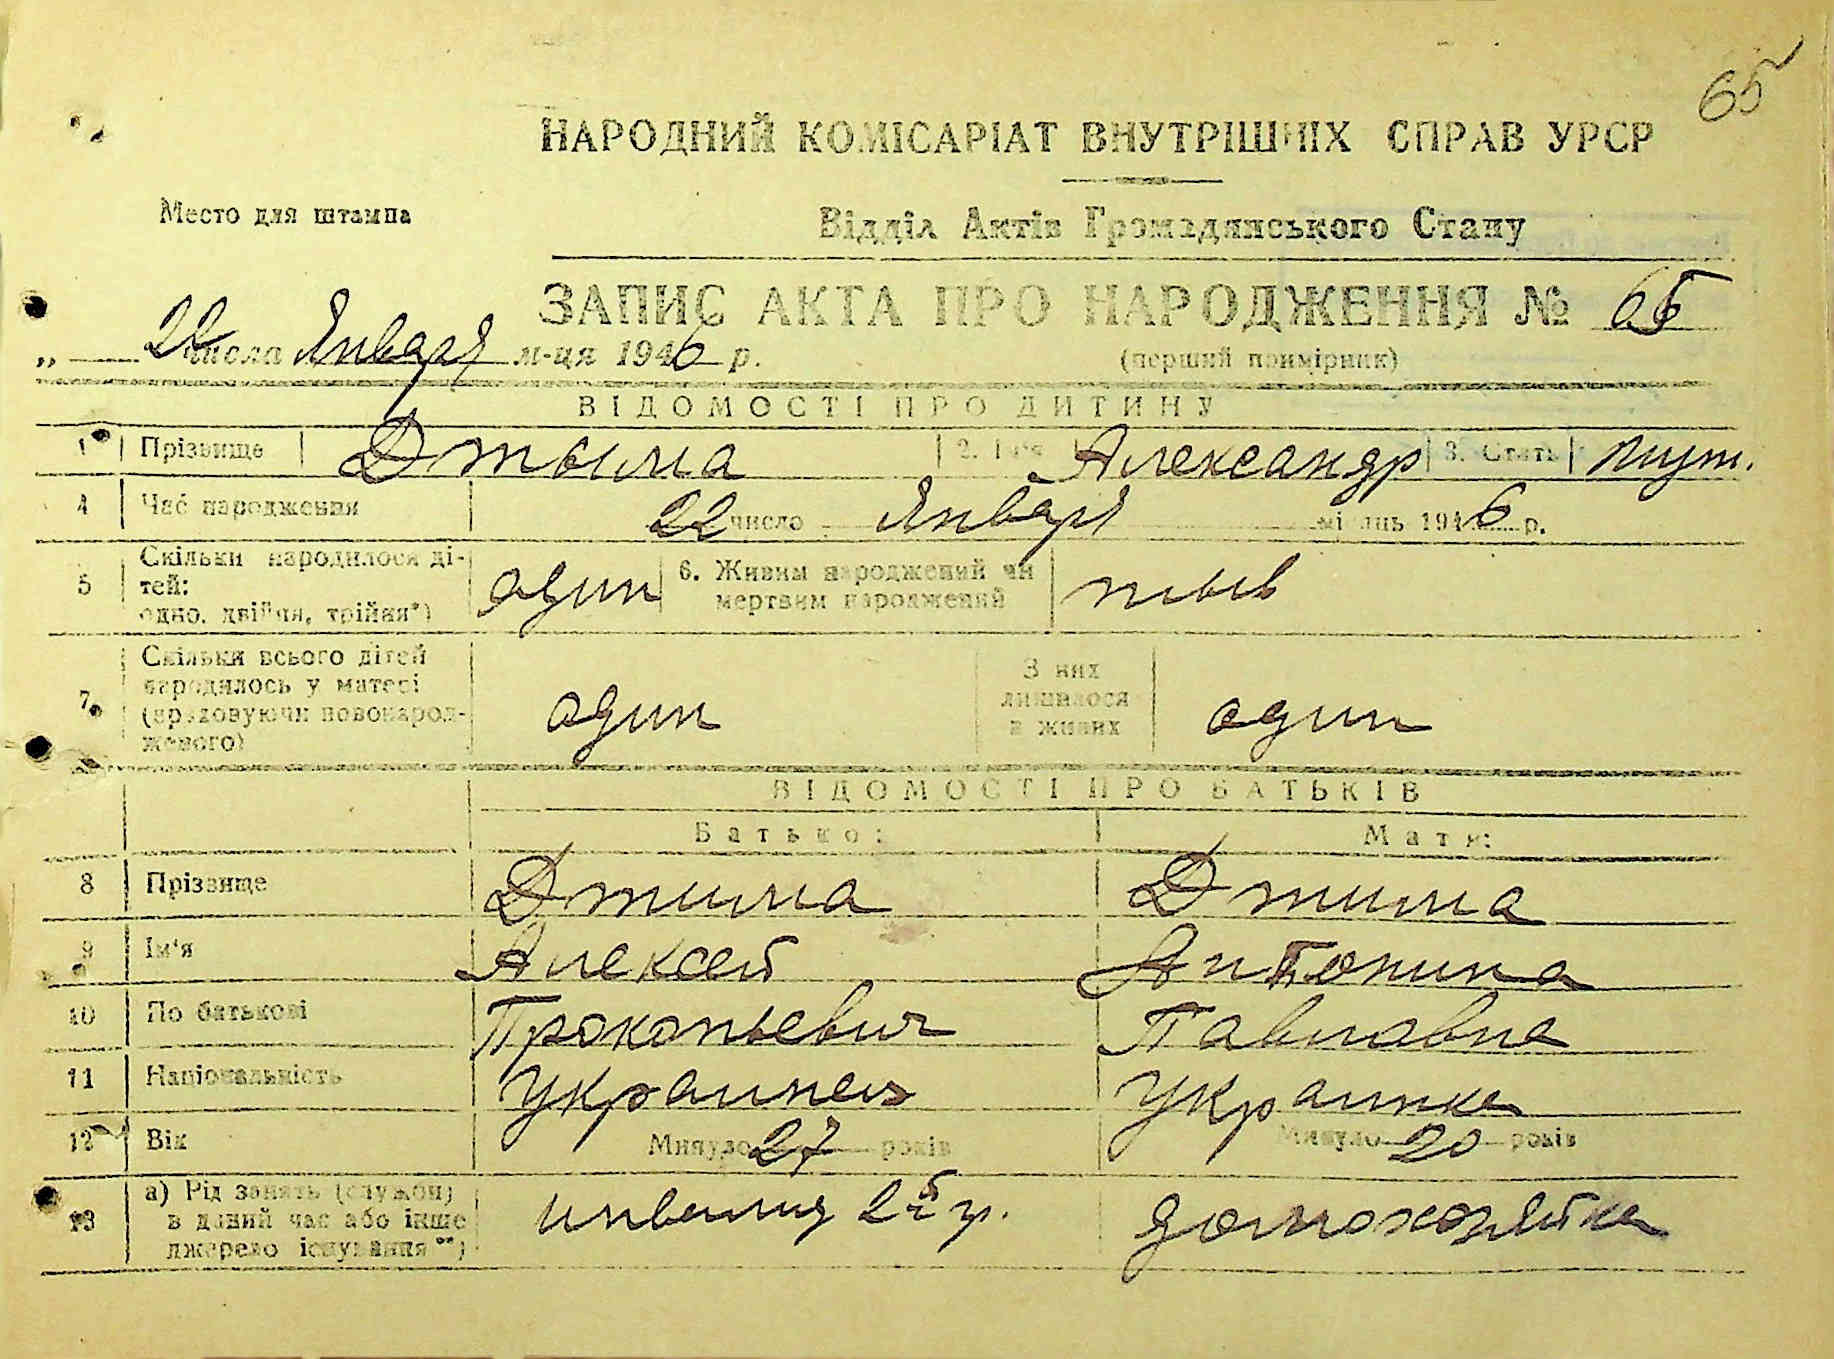 65
НАРОДНИЙ КОМІСАРІАТ ВНУТРІШНІХ СПРАВ УРСР
Место для штампа
Відділ Актів Громадянського Стану
ЗАПИС АКТА ПРО НАРОДЖЕННЯ № 65
„ 22 числа Января м-ця 1946 р.
(перший примірник)
ВІДОМОСТІ ПРО ДИТИНУ
1 Прізвище Джыма 2. Ім'я Александр 3. Стать муж.
4 Час народження 22 число Января місяць 1946 р.
5 Скільки народилося ді-
тей:
одно, двійня, трійня*) один 6. Живим народжений чи
мертвим народжений жыв
7. Скільки всього дітей
народилось у матері
(враховуючи новонарод-
женого) один З них
лишилося
в живих один
ВІДОМОСТІ ПРО БАТЬКІВ
Батько: Мати:
8 Прізвище Джима Джима
9 Ім'я Алексей Антонина
10 По батькові Прокопьевич Павловна
11 Національність Украинец Украинка
12 Вік Минуло 27 років Минуло 20 років
13 а) Рід занять (служби)
в даний час або інше
джерело існування**) инвалид 2й гр. домохозяйка